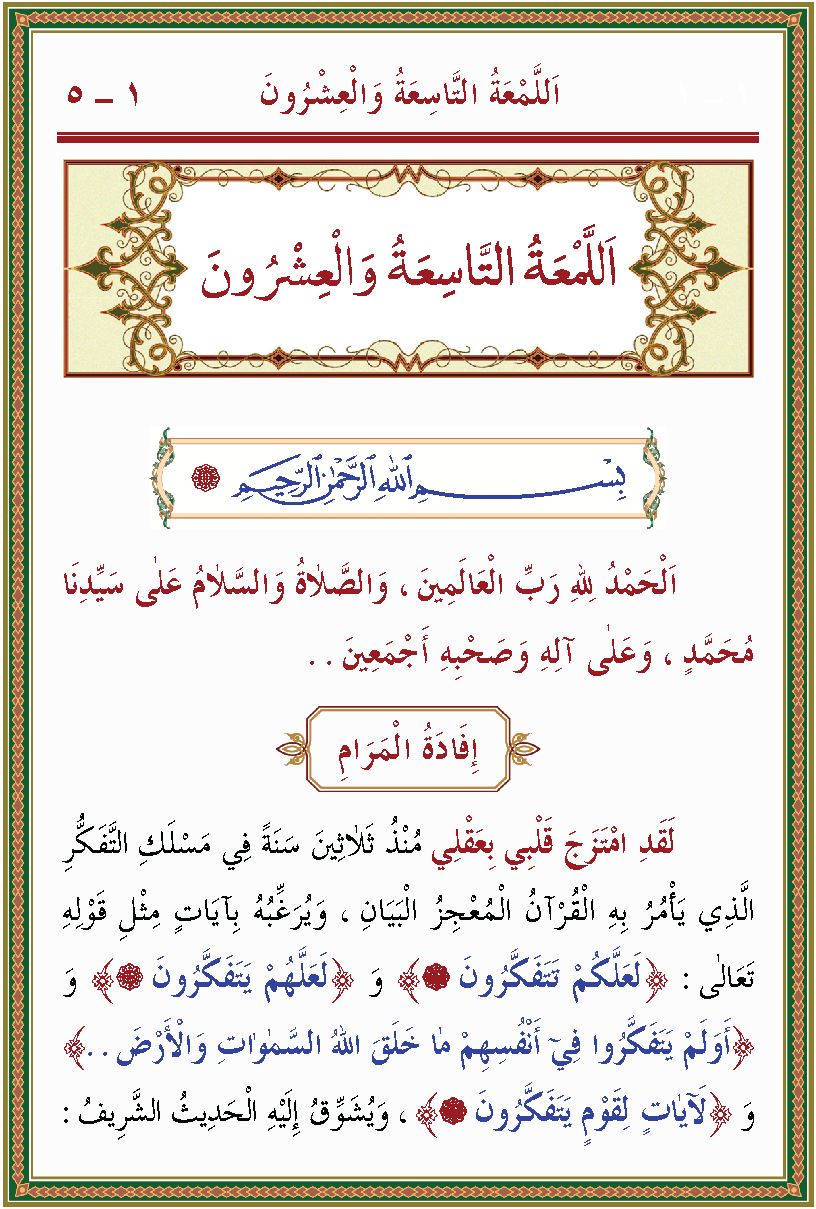 اَللَّمْعَةُ التَّاسِعَةُ وَالْعِشْرُونَ ١ – ٥
اَللَّمْعَةُ التَّاسِعَةُ وَالْعِشْرُونَ
بِسْمِ اللهِ الرَّحْمٰنِ الرَّحِيمِ
اَلْحَمْدُ لِلهِ رَبِّ الْعَالَمِينَ ، وَالصَّلاٰةُ وَالسَّلاٰمُ عَلٰى سَيِّدِنَا
مُحَمَّدٍ ، وَعَلٰى آلِهِ وَصَحْبِهِ أَجْمَعِينَ . .
إِفَادَةُ الْمَرَامِ
لَقَدِ امْتَزَجَ قَلْبِي بِعَقْلِي مُنْذُ ثَلاٰثِينَ سَنَةً فِي مَسْلَكِ التَّفَكُّرِ
الَّذِي يَأْمُرُ بِهِ الْقُرْآنُ الْمُعْجِزُ الْبَيَانِ ، وَيُرَغِّبُهُ بِآيَاتٍ مِثْلِ قَوْلِهِ
تَعَالٰى : ﴿لَعَلَّكُمْ تَتَفَكَّرُونَ﴾ وَ ﴿لَعَلَّهُمْ يَتَفَكَّرُونَ﴾ وَ
﴿أَوَلَمْ يَتَفَكَّرُوا فِيٓ أَنْفُسِهِمْ مٰا خَلَقَ اللهُ السَّمٰوٰاتِ وَالْأَرْضَ . .﴾
وَ ﴿لَآيٰاتٍ لِقَوْمٍ يَتَفَكَّرُونَ﴾ ، وَيُشَوِّقُ إِلَيْهِ الْحَدِيثُ الشَّرِيفُ :